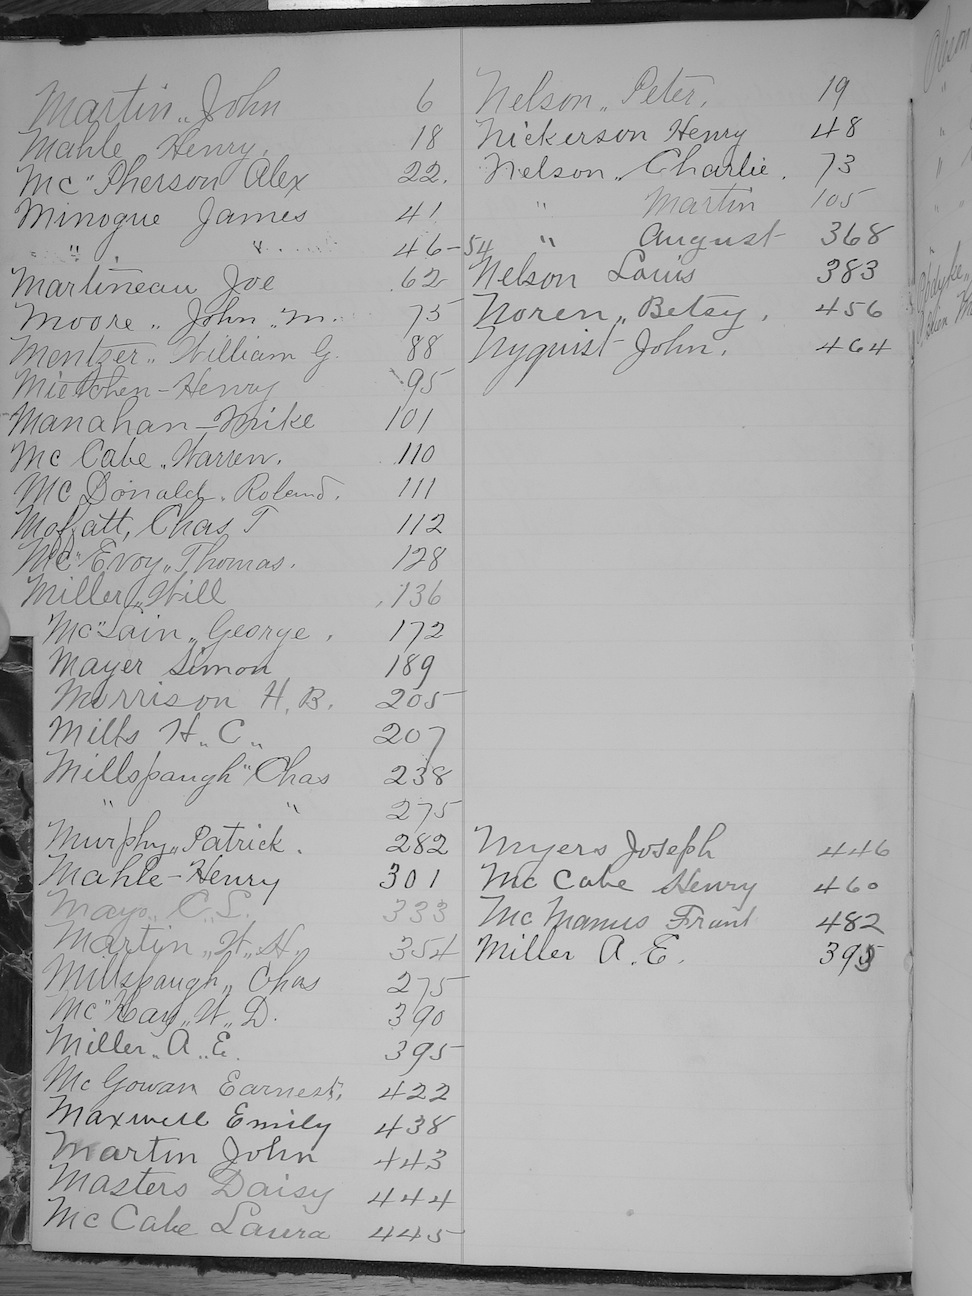 Martin,, John 6
Mahle Henry. 18
Mc"Pherson Alex 22.
Minogue James 41
" " 46-54
Martineau Joe 62
Moore,, John,, M. 75
Mentzer,, William G. 88
Mietchen-Henry 95
Manahan-Mike 101
Mc Cabe,, Warren. 110
Mc Donald. Roland. 111
Moffatt, Chas T 112
Mc"Evoy,, Thomas. 128
Miller,, Will 136
Mc"Lain,, George. 172
Mayer Simon 189
Morrison H. B. 205
Mills H,, C,, 207
Millspaugh" Chas 238
" " 275
Murphy,, Patrick. 282
Mahle-Henry 301
Mayo,, C,, L. 333
Martin,, W,, H, 354
Millspaugh,, Chas 275
Mc"Kay,, W,, D. 390
Miller,, A,, E. 395
Mc Gowan Earnest. 422
Maxwell Emily 438
Martin John 443
Masters Daisy 444
Mc Cabe Laura 445
Nelson,, Peter. 19
Nickerson Henry 48
Nelson,, Charlie. 73
" Martin 105
" August 368
Nelson Louis 383
Noren,, Betsy. 456
Nyquist John. 464
Myers Joseph 446
Mc Cabe Henry 460
Mc Manus Frank 482
Miller A. E. 395